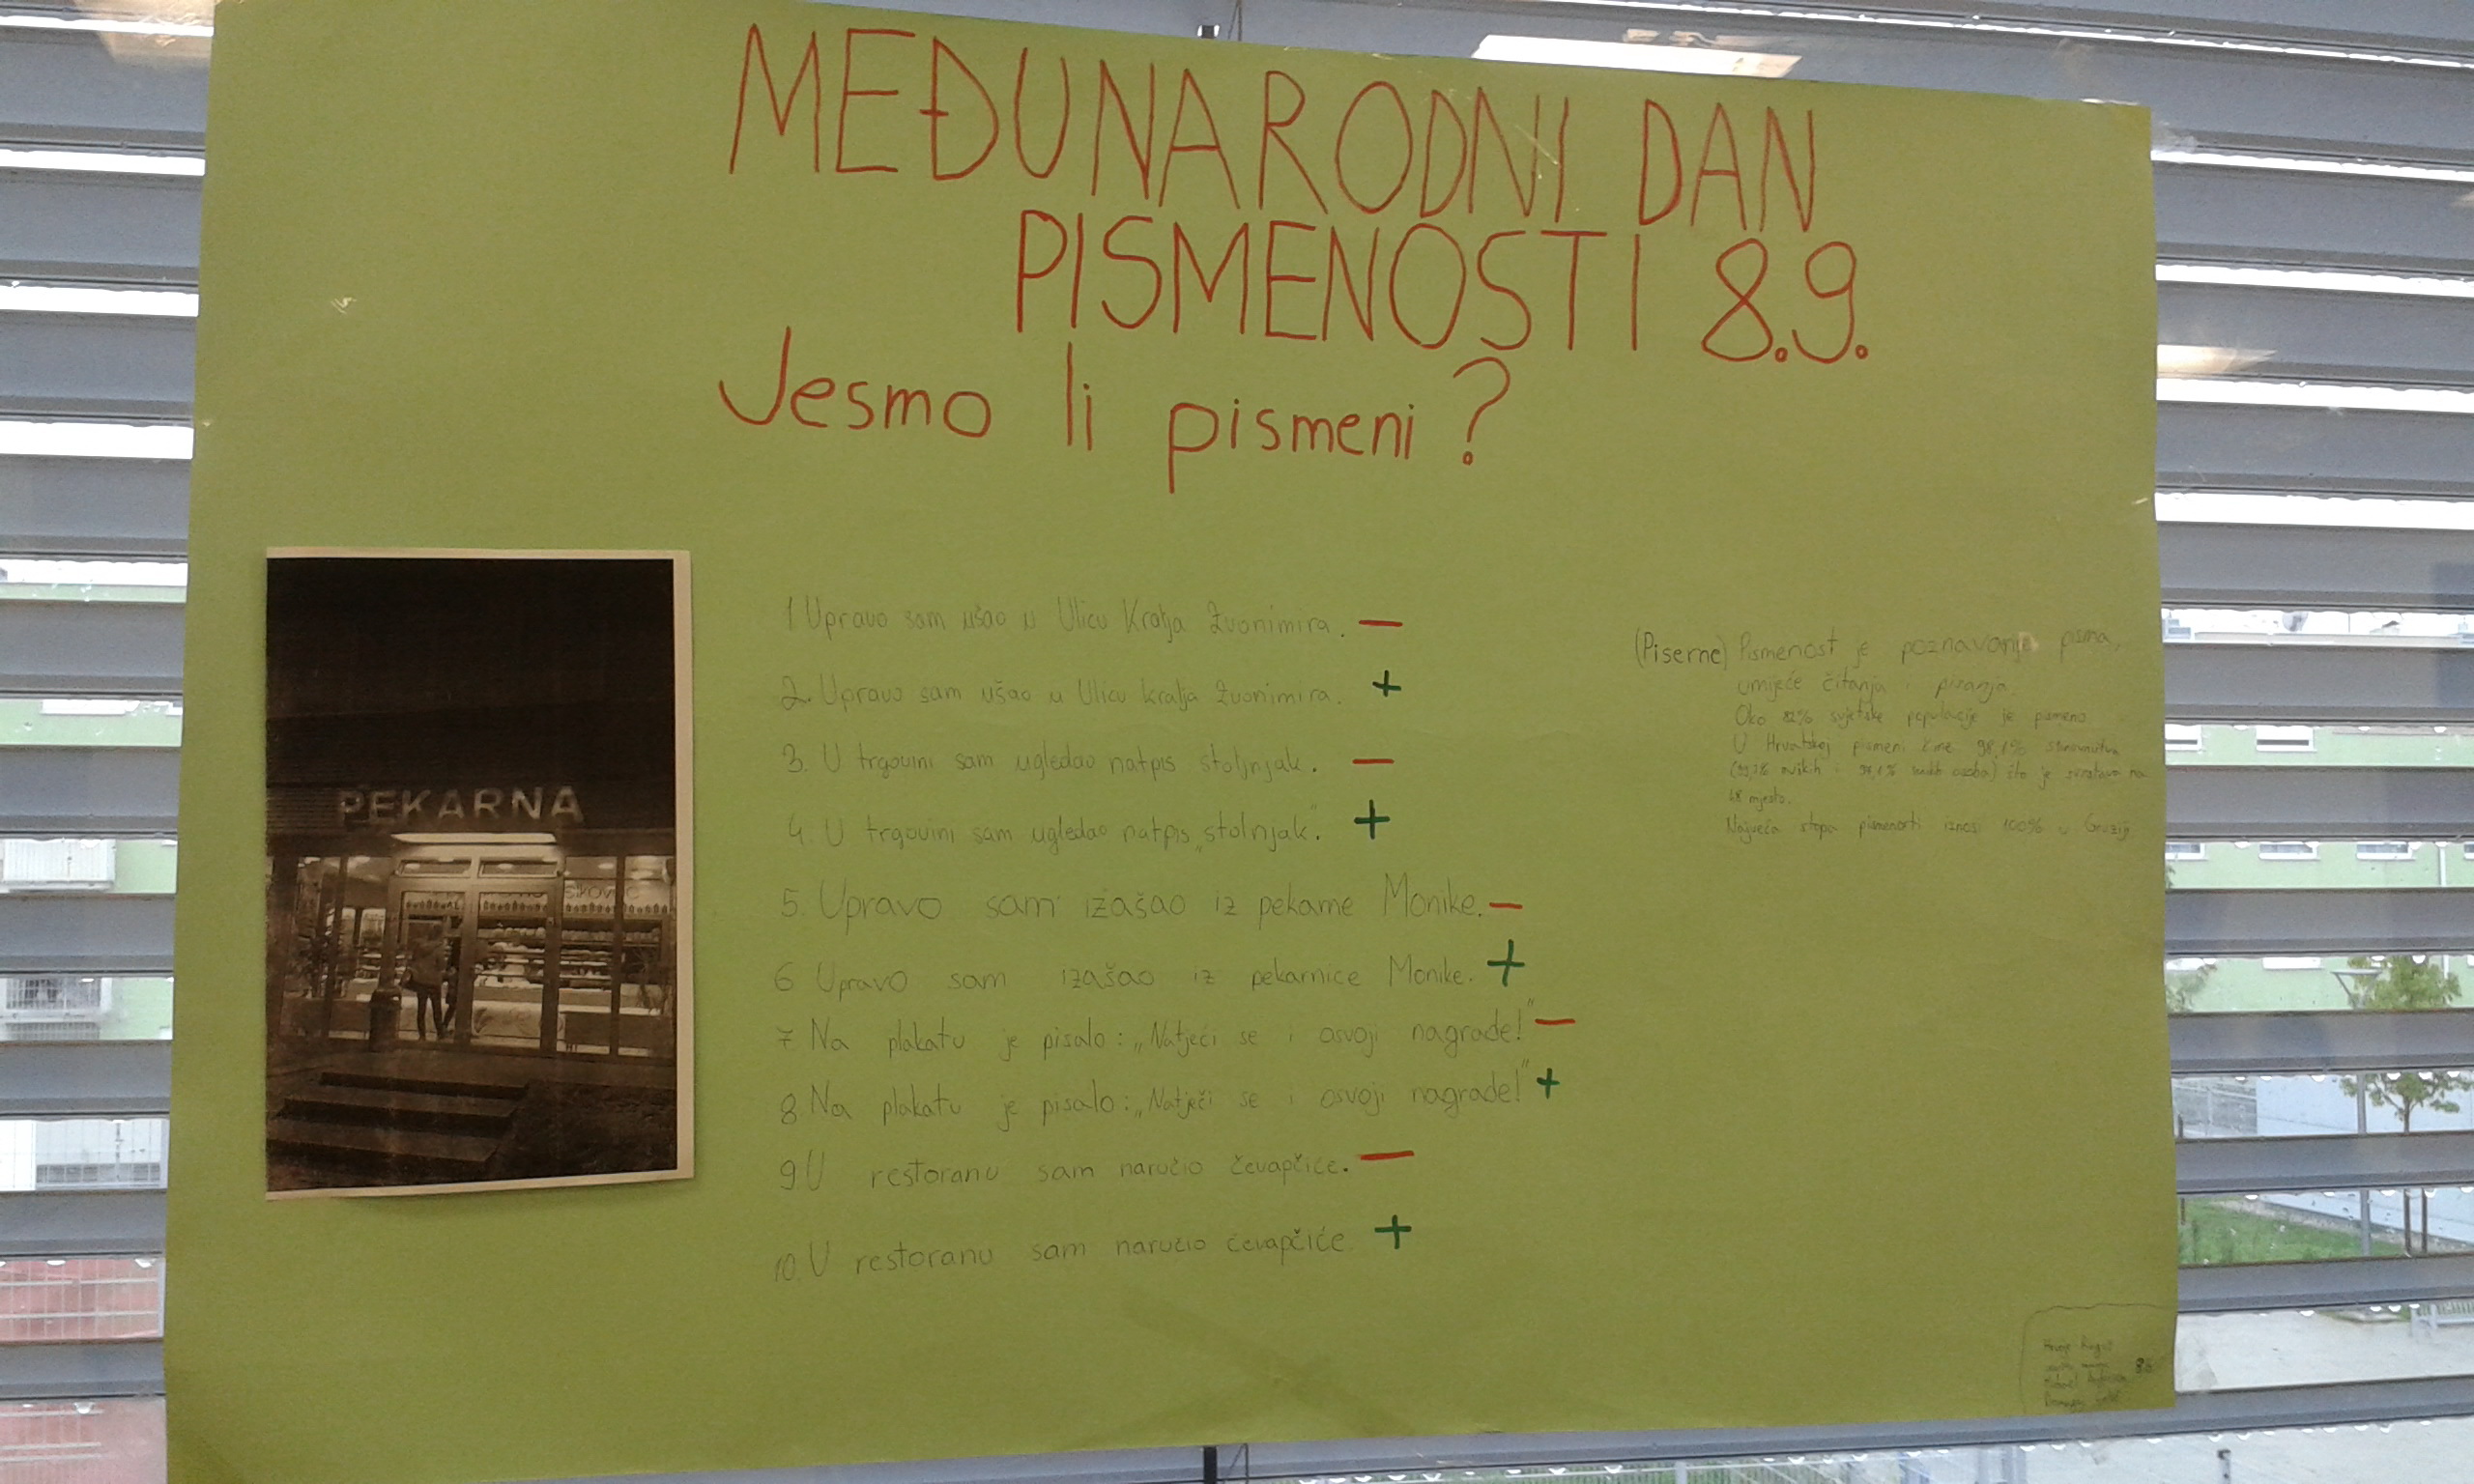 MEĐUNARODNI DAN
PISMENOSTI 8.9.
Jesmo li pismeni?
PEKARNA
1 Upravo sam ušao u Ulicu Kralja Zvonimira. —
2. Upravo sam ušao u Ulicu kralja Zvonimira. +
3. U trgovini sam ugledao natpis stoljnjak. —
4. U trgovini sam ugledao natpis „stolnjak". +
5. Upravo sam izašao iz pekarne Monike. —
6 Upravo sam izašao iz pekarnice Monike. +
7 Na plakatu je pisalo: „Natjeći se i osvoji nagrade!" —
8 Na plakatu je pisalo: „Natječi se i osvoji nagrade!" +
9 U restoranu sam naručio čevapčiće. —
10. U restoranu sam naručio ćevapčiće +
(Piserne) Pismenost je poznavanje pisma,
umijeće čitanja i pisanja.
Oko 82% svjetske populacije je pismeno
U Hrvatskoj pismeni čine 98,1%
što je na
48 mjesto.
Najveća stopa pismenosti iznosi 100% u Gruziji
8b